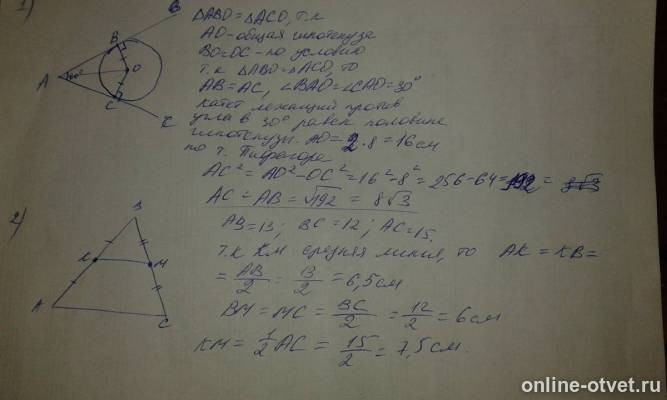 1)
B
B
A
60°
O
C
C
ΔABO = ΔACO, т.к
AO - общая гипотенуза
BO = OC - по условию
т.к ΔABO = ΔACO, то
AB = AC, ∠BAO = ∠CAO = 30°
катет лежащий против
угла в 30° равен половине
гипотенузы. AO = 2·8 = 16 см
по т. Пифагора
AC² = AO² - OC² = 16² - 8² = 256 - 64 = 192 =
AC = AB = √192 = 8√3
2)
B
K
M
A
C
AB = 13; BC = 12; AC = 15.
т.к KM средняя линия, то AK = KB =
= AB/2 = 13/2 = 6,5 см
BM = MC = BC/2 = 12/2 = 6 см
KM = 1/2 AC = 15/2 = 7,5 см.
online-otvet.ru